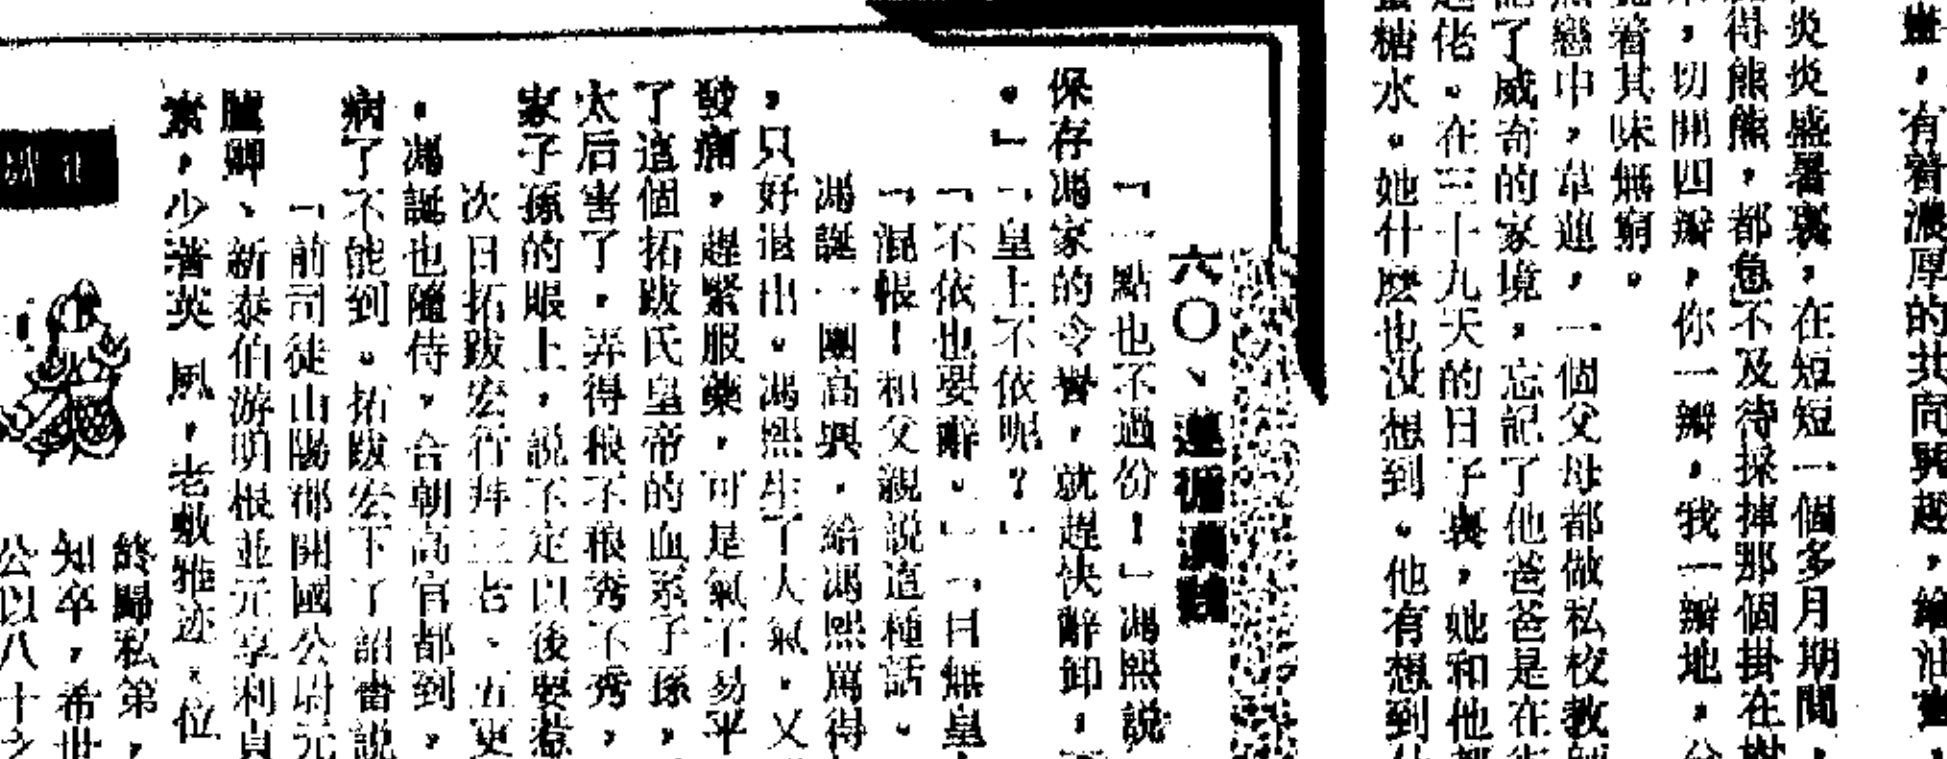 畫，有着濃厚的共同興趣，繪油畫，
炎炎盛暑裏，在短短一個多月期間，
得熊熊，都急不及待採摘那個掛在樹
，切開四瓣，你一瓣，我一瓣地，分
着其味無窮。
戀中，草蓮，一個父母都做私校教師
了威奇的家境，忘記了他爸爸是在
佬。在三十九天的日子裏，她和他都
糖水。她什麼也沒想到。他有想到什
六〇、蓮
「一點也不過份！」馮熙說
保存馮家的令譽，就趕快辭卸，
。」「皇上不依呢？」
「不依也要辭。」「目無皇
「混帳！和父親說這種話。
馮誕一團高興，給馮熙罵得
，只好退出。馮熙生了大氣，又
發痛，趕緊服藥，可是氣不易平
了這個拓跋氏皇帝的血系子孫，
太后害了，弄得稂不稂莠不莠，
家子孫的眼上，說不定以後要惹
次日拓跋宏行拜三老、五更
，馮誕也隨侍，合朝高官都到，
病了不能到。拓跋宏下了詔書說
「前司徒山陽郡開國公尉元
臚卿、新泰伯游明根並元亨利貞
素，少著英風，老敷雅迹，位
終歸私第，
知卒，希世
公以八十之